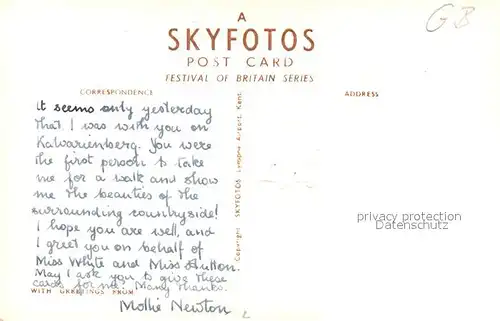 A
SKYFOTOS
POST CARD
FESTIVAL OF BRITAIN SERIES
GB
CORRESPONDENCE
ADDRESS
It seems only yesterday
that I was with you on
Kalvarienberg. You were
the first person to take
me for a walk and show
me the beauties of the
surrounding countryside!
I hope you are well, and
I greet you on behalf of
Miss Whyte and Miss Hutton.
May I ask you to give these
cards for me? Many thanks.
WITH GREETINGS FROM
Mollie Newton
Copyright SKYFOTOS Lympne Airport, Kent.
privacy protection
Datenschutz